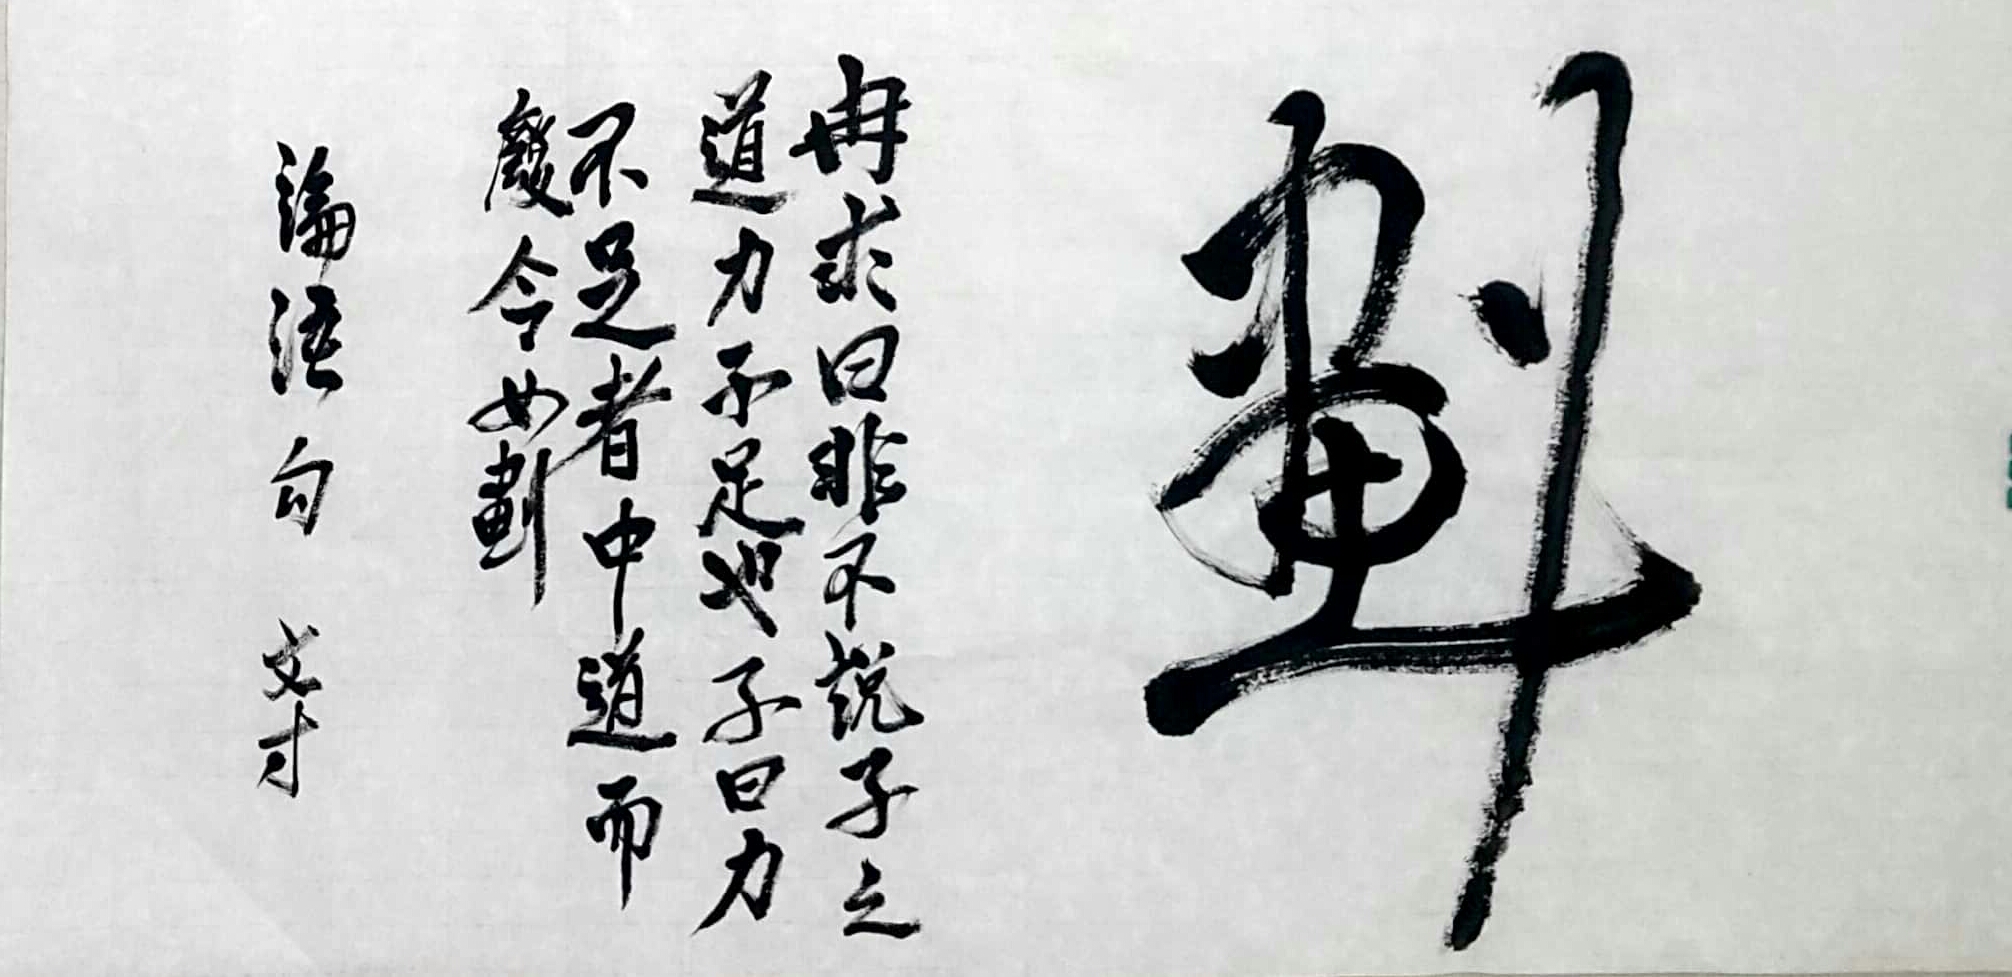 劃
冉求曰非不說子之
道力不足也子曰力
不足者中道而
廢今女劃
論語句 文才